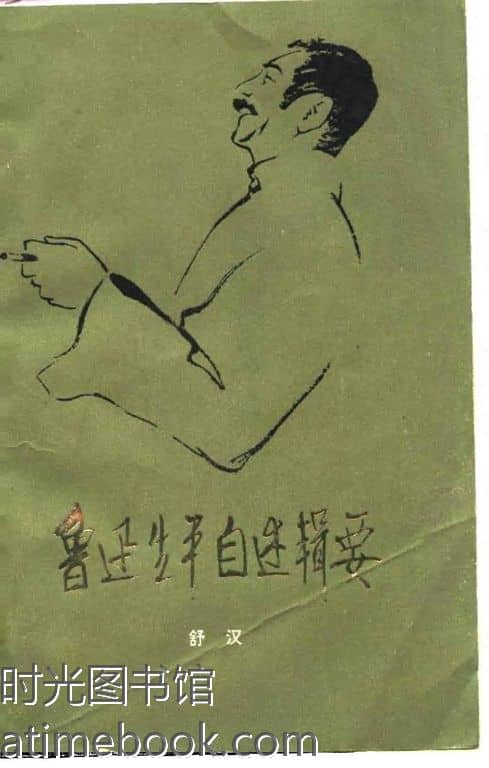 鲁迅生平自述辑要
舒汉
时光图书馆
atimebook.com